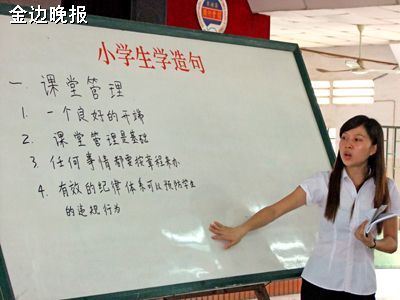 金边晚报
小学生学造句
一 课堂管理
1. 一个良好的开端
2. 课堂管理是基础
3. 任何事情都要按章程来办
4. 有效的纪律体系可以预防学生
的违规行为